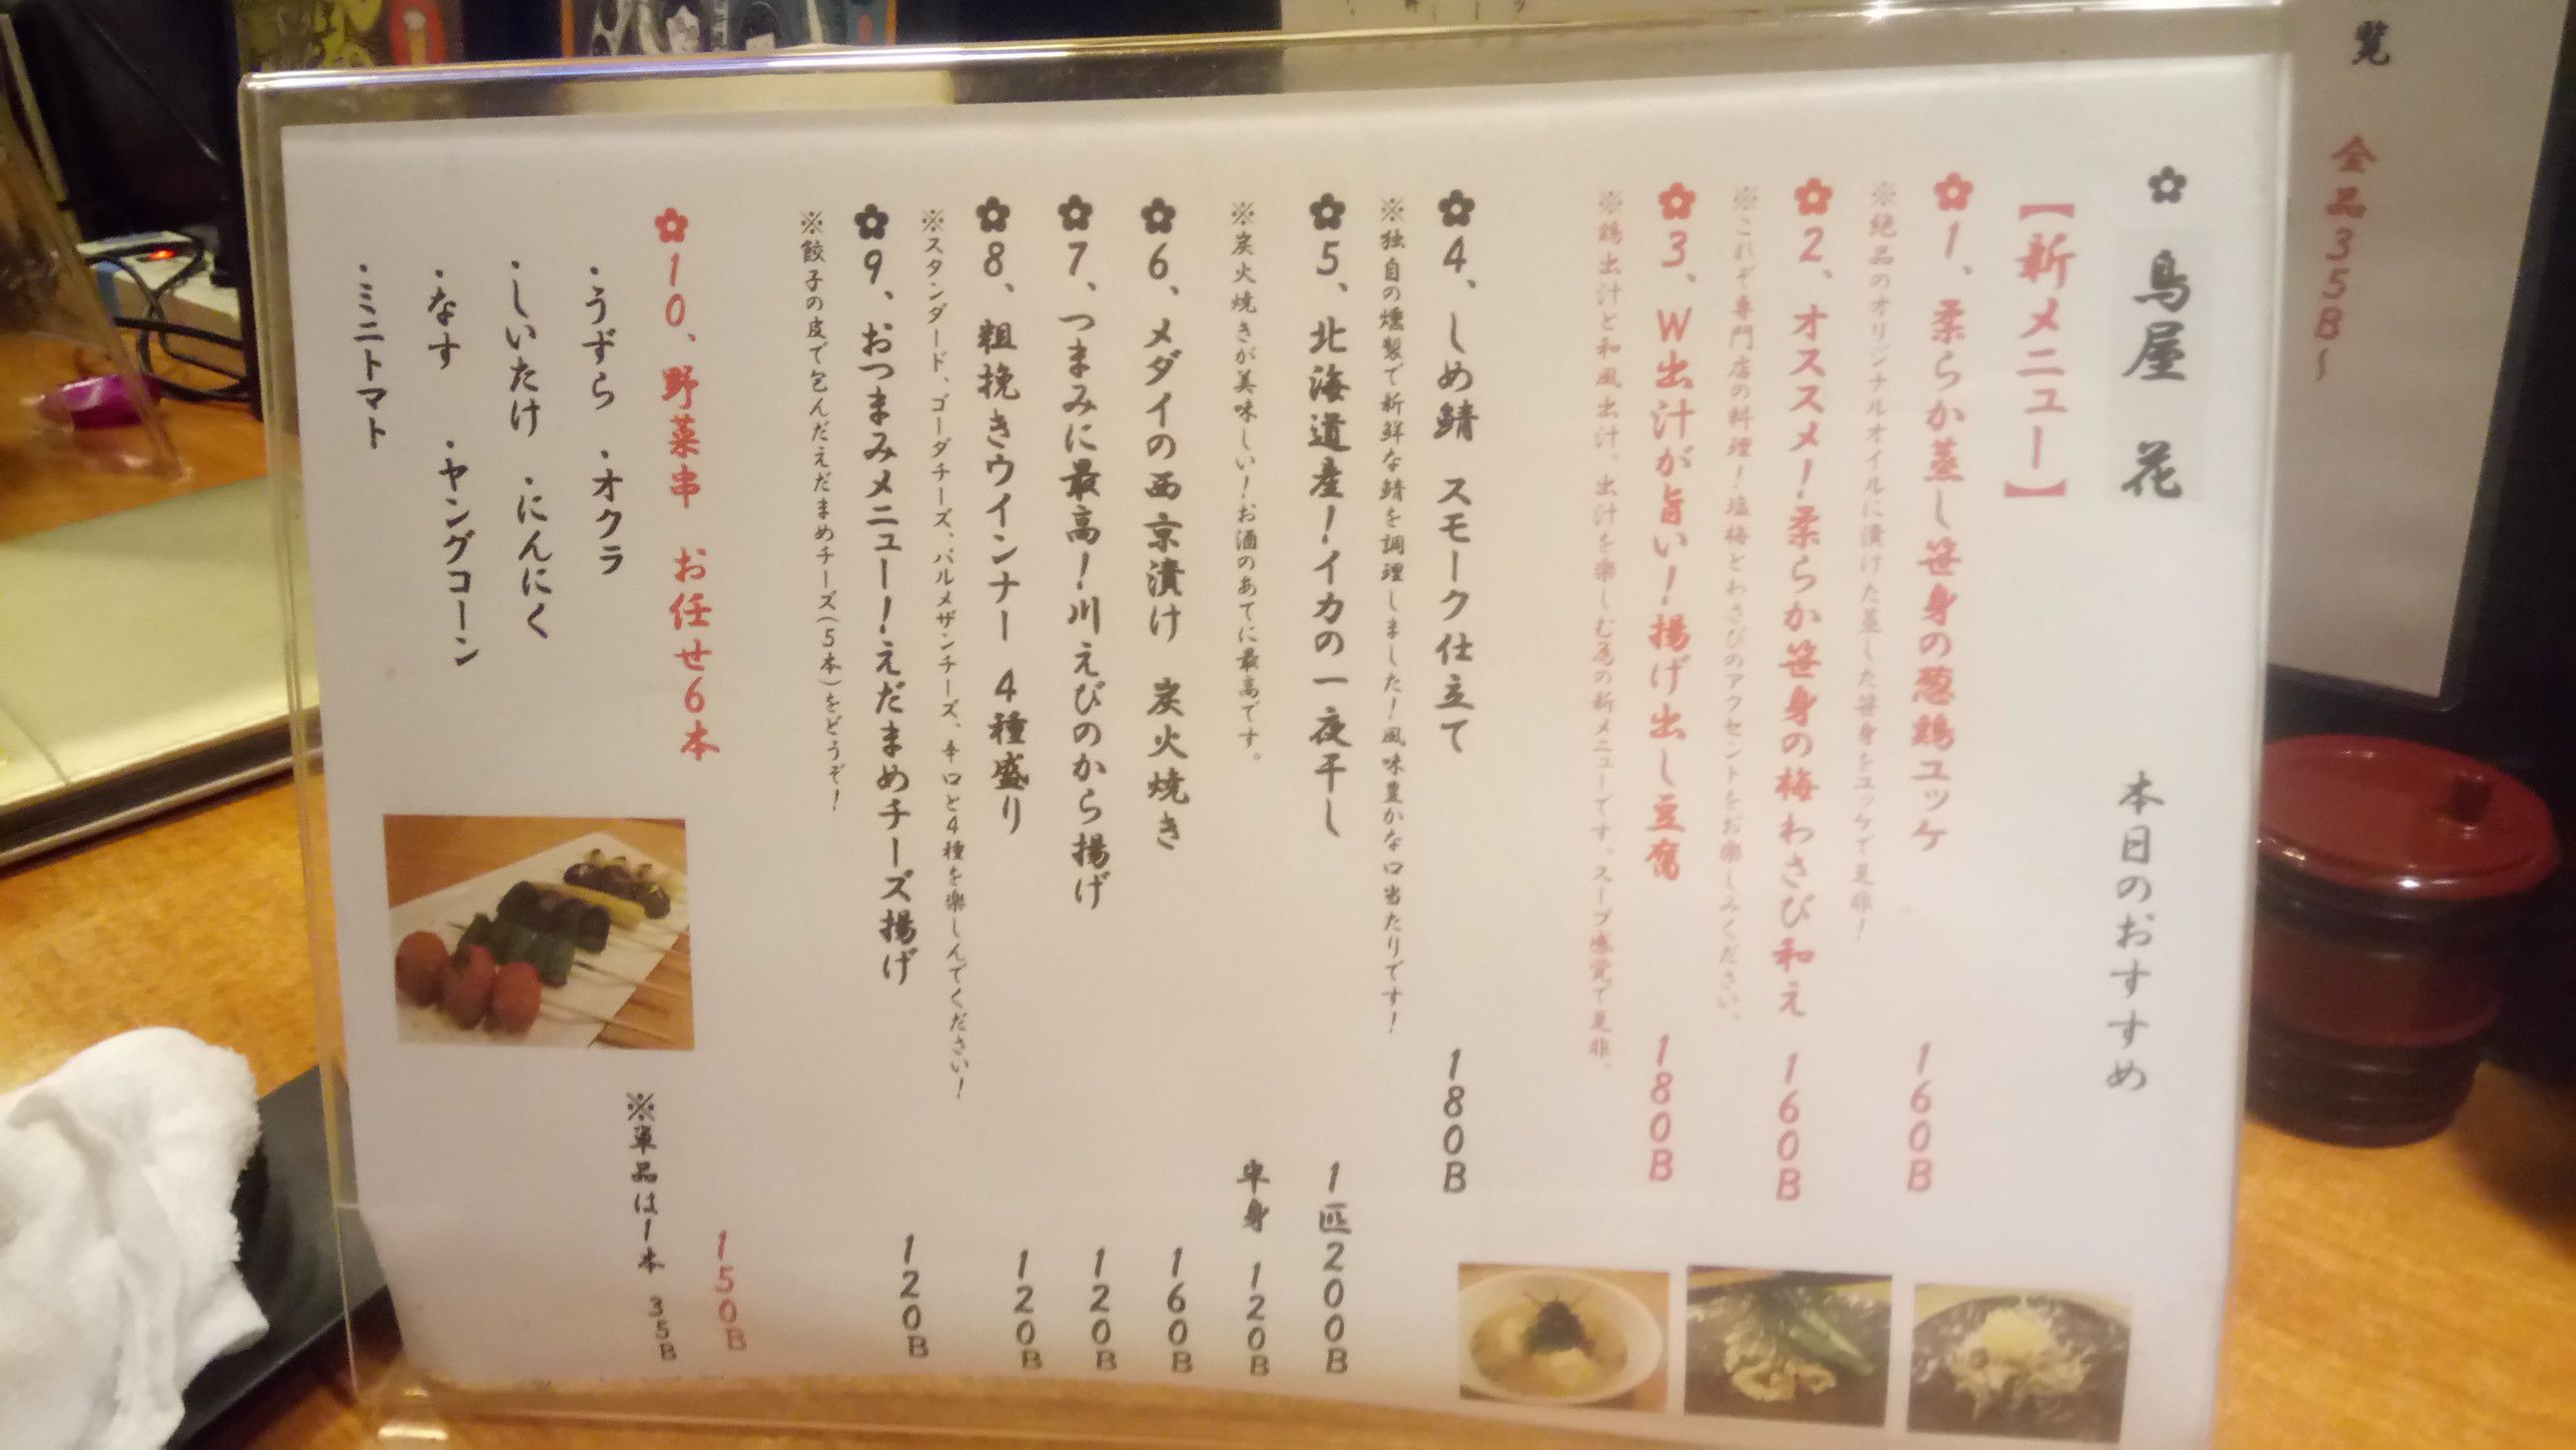 鳥屋 花 本日のおすすめ
【新メニュー】
1、柔らか蒸し笹身の葱鶏ユッケ 160B
※絶品のオリジナルオイルに漬けた蒸した笹身をユッケで是非!
2、オススメ!柔らか笹身の梅わさび和え 160B
※これぞ専門店の料理!塩梅とわさびのアクセントをお楽しみください。
3、W出汁が旨い!揚げ出し豆腐 180B
※鶏出汁と和風出汁。出汁を楽しむ為の新メニューです。スープ感覚で是非。
4、しめ鯖 スモーク仕立て 180B
※独自の燻製で新鮮な鯖を調理しました!風味豊かな口当たりです!
5、北海道産!イカの一夜干し 1匹200B
半身 120B
※炭火焼きが美味しい!お酒のあてに最高です。
6、メダイの西京漬け 炭火焼き 160B
7、つまみに最高!川えびのから揚げ 120B
8、粗挽きウインナー 4種盛り 120B
※スタンダード、ゴーダチーズ、パルメザンチーズ、辛口と4種を楽しんでください!
9、おつまみメニュー!えだまめチーズ揚げ 120B
※餃子の皮で包んだえだまめチーズ(5本)をどうぞ!
10、野菜串 お任せ6本 150B
※単品は1本 35B
・うずら ・オクラ
・しいたけ ・にんにく
・なす ・ヤングコーン
・ミニトマト
覧 全品35B~